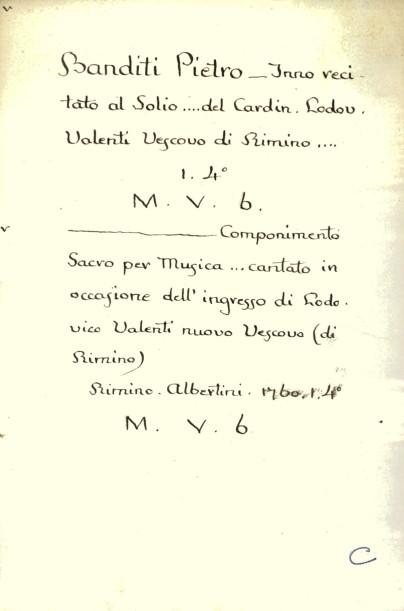 v
Banditi Pietro _ Inno reci-
tato al Solio .... del Cardin. Lodov.
Valenti Vescovo di Rimino ....
1. 4°
M. V. 6.
v ———— Componimento
Sacro per Musica ... cantato in
occasione dell' ingresso di Lodo-
vico Valenti nuovo Vescovo (di
Rimino)
Rimino. Albertini. 1760. 1. 4°
M. V. 6
C